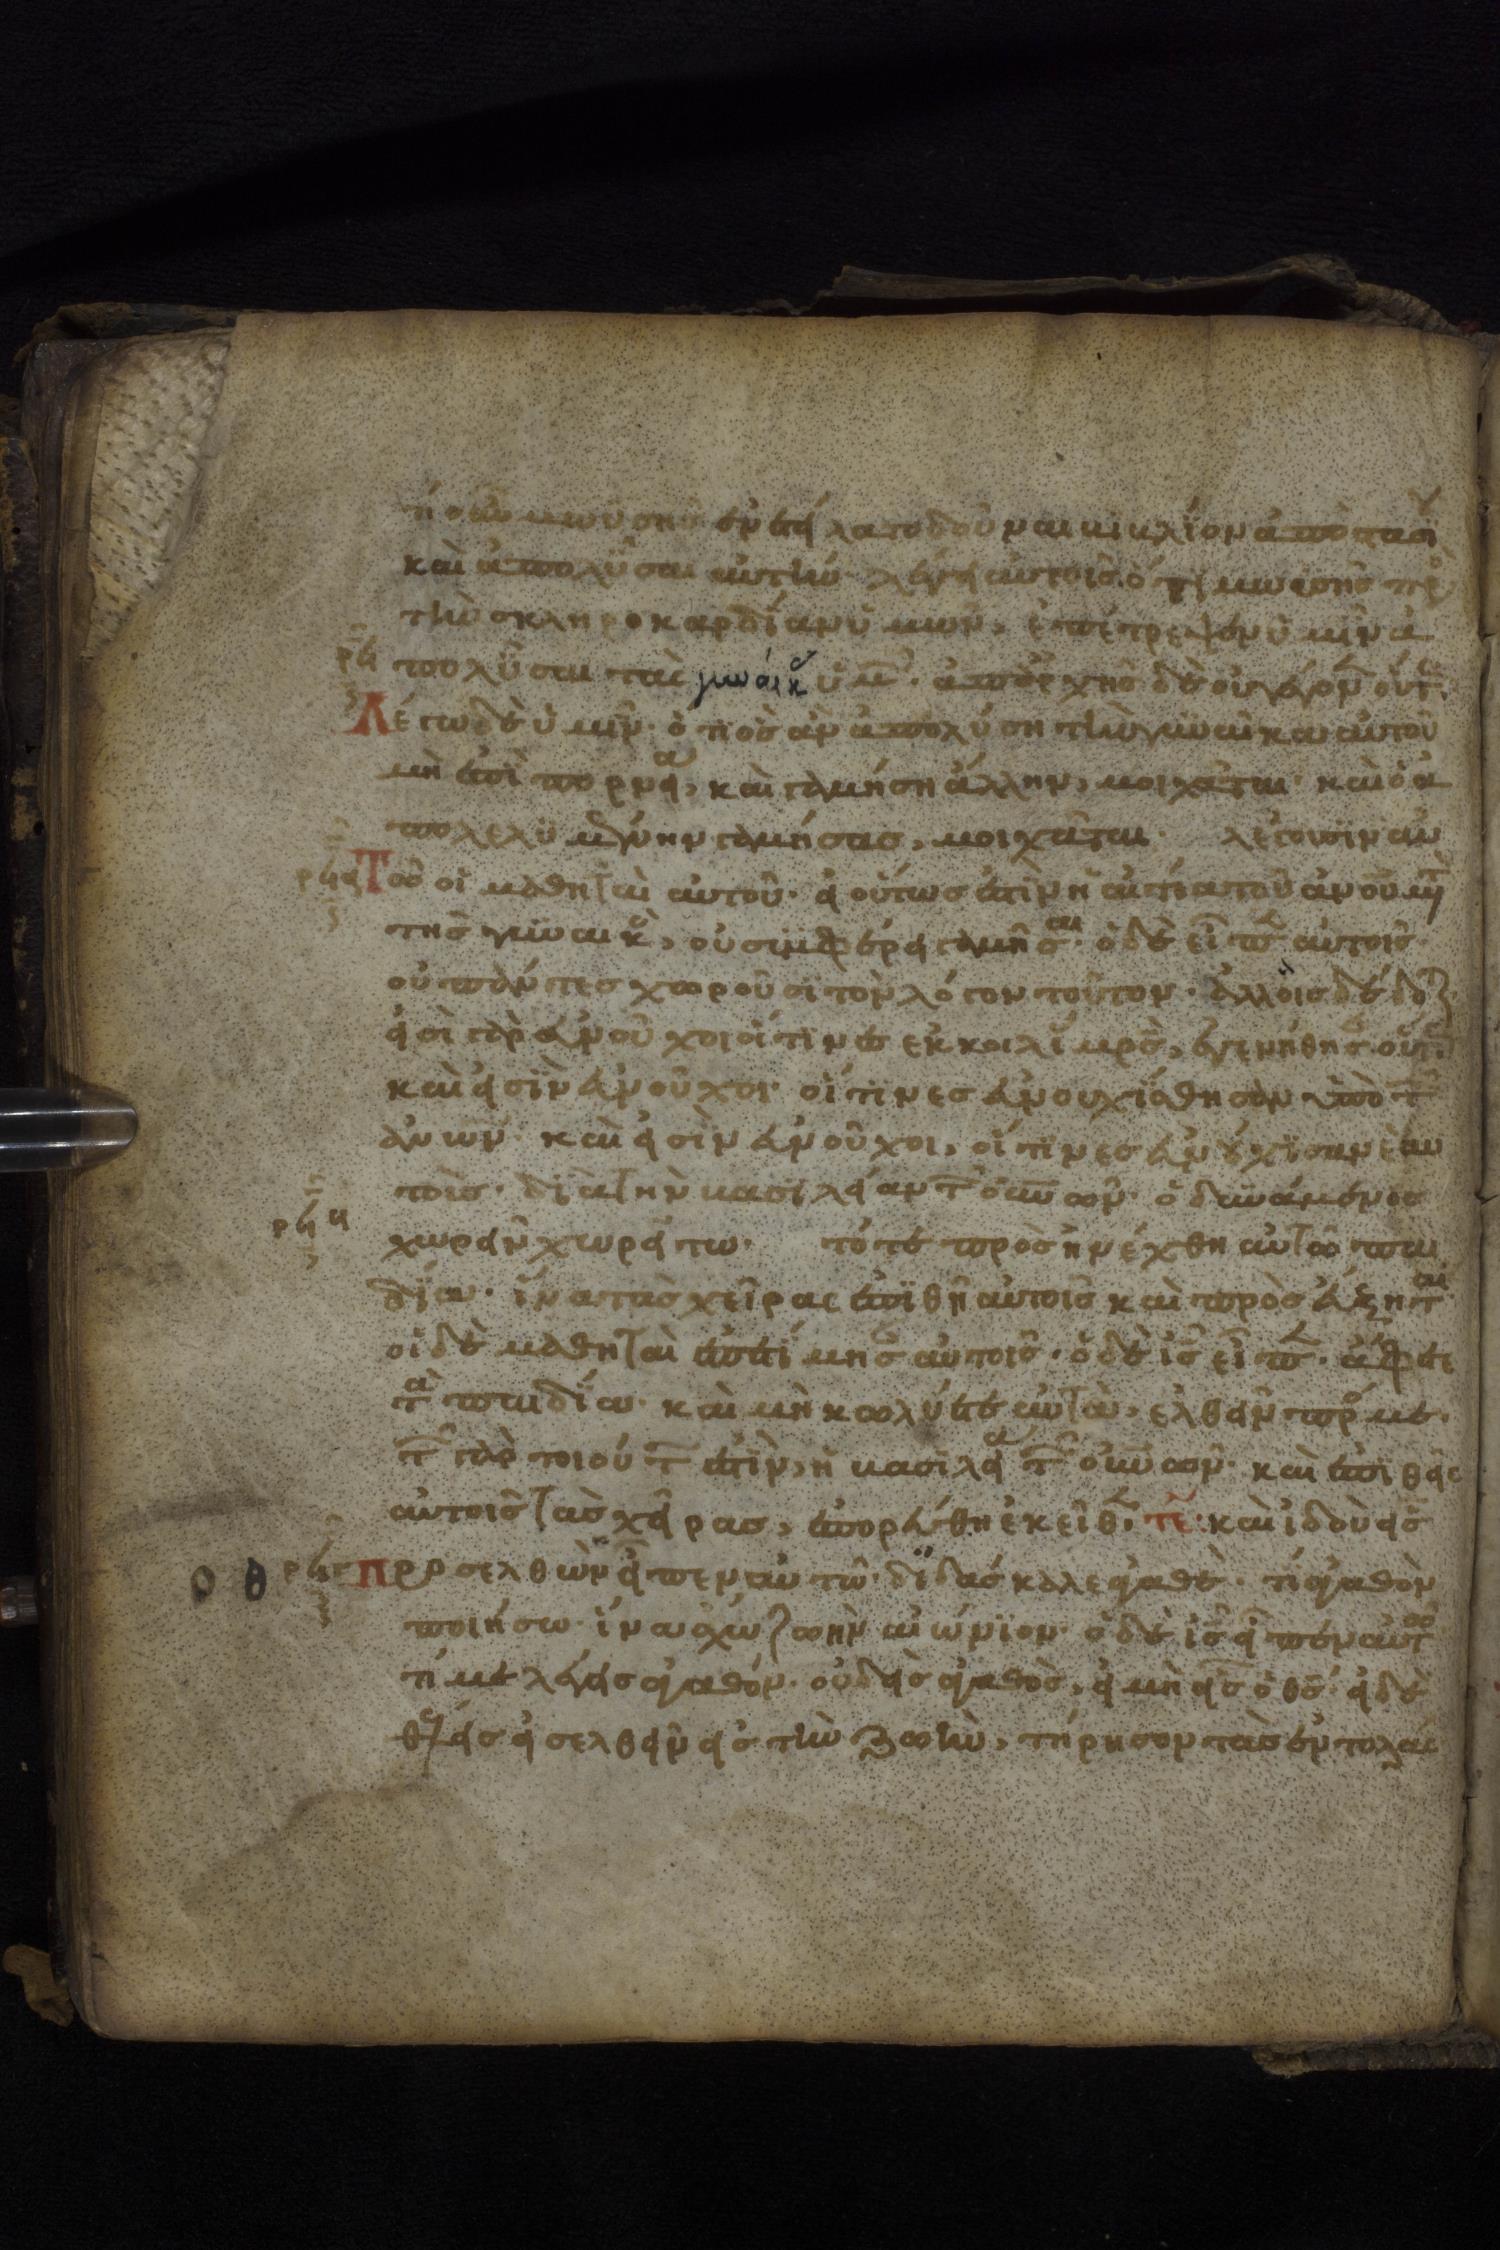 τί οὖν μωϋσῆς ἐνετείλατο δοῦναι βιβλίον ἀποστασίου
καὶ ἀπολῦσαι αὐτήν· λέγει αὐτοῖς· ὅτι μωϋσῆς πρὸς
τὴν σκληροκαρδίαν ὑμῶν, ἐπέτρεψεν ὑμῖν ἀ
πολῦσαι τὰς γυναῖκ ὑμ· ἀπ ἀρχῆς δὲ οὐ γέγονεν οὕτ·
ρϟ
Λέγω δὲ ὑμῖν· ὅτι ὃς ἂν ἀπολύση τὴν γυναῖκα αὐτοῦ
μὴ ἐπὶ πορνεία, καὶ γαμήση ἄλλην, μοιχᾶται· καὶ ὁ ἀ
πολελυμένην γαμήσας, μοιχᾶται· λέγουσιν αὐ
ρϟα
Τῶ οἱ μαθηταὶ αὐτοῦ· εἰ οὕτως ἐστὶν ἡ αἰτία τοῦ ἀνου μετὰ
τῆς γυναικ, οὐ συμφέρει γαμῆσαι· ὁ δὲ εἶπεν αὐτοῖς·
οὐ πάντες χωροῦσι τὸν λόγον τοῦτον· ἀλλ οἷς δέδο
εἰσὶ γὰρ εὐνοῦχοι οἵτινες ἐκ κοιλί μρς, ἐγεννήθησ οὕτ·
καὶ εἰσὶν εὐνοῦχοι· οἵτινες εὐνουχίσθησαν ὑπὸ τ
ἀνων· καὶ εἰσὶν εὐνοῦχοι, οἵτινες εὐνούχισαν ἑαυ
τοῖς· διὰ τὴν βασιλείαν τ οὐνων· ὁ δυνάμενος
ρϟβ
χωρεῖν χωρείτω· τότε προσηνέχθη αὐτῶ παι
δία· ἵνα τὰς χεῖρας ἐπιθῆ αὐτοῖς καὶ προσεύξηται
οἱ δὲ μαθηταὶ ἐπετίμησ αὐτοῖς· ὁ δὲ ις εἶπεν· ἄφετε
τὰ παιδία· καὶ μὴ κωλύετε αὐτὰ, ἐλθεῖν πρός με·
τ γὰρ τοιού τ ἐστὶν, ἡ βασιλεία τ οὐνων· καὶ ἐπιθεὶς
αὐτοῖς τὰς χεῖρας, ἐπορεύθη ἐκεῖθεν· τε· καὶ ἰδοὺ εἷς
οθ ρϟγ
Προσελθὼν εἶπεν αὐτῶ· διδάσκαλε ἀγαθὲ· τί ἀγαθὸν
ποιήσω· ἵνα ἔχω ζωὴν αἰώνιον· ὁ δὲ ις εἶπεν αὐτῶ
τί με λέγεις ἀγαθόν· οὐδεὶς ἀγαθὸς, εἰ μὴ εἷς ὁ θς· εἰ δὲ
θέλεις εἰσελθεῖν εἰς τὴν ζωὴν, τήρησον τὰς ἐντολάς